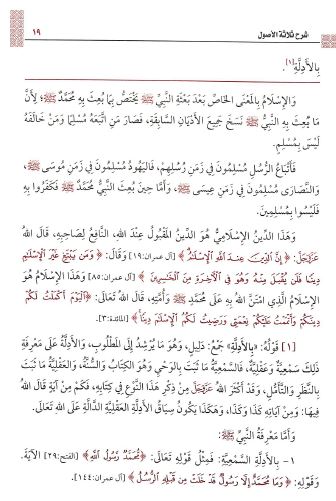 شرح ثلاثة الأصول
١٩
بِالأَدِلَّةِ[١].
وَالإِسْلَامُ بِالْمَعْنَى الخَاصِّ بَعْدَ بَعْثَةِ النَّبِيِّ ﷺ يَخْتَصُّ بِمَا بُعِثَ بِهِ مُحَمَّدٌ ﷺ؛ لِأَنَّ
مَا بُعِثَ بِهِ النَّبِيُّ ﷺ نَسَخَ جَمِيعَ الأَدْيَانِ السَّابِقَةِ، فَصَارَ مَنِ اتَّبَعَهُ مُسْلِمًا وَمَنْ خَالَفَهُ
لَيْسَ بِمُسْلِمٍ.
فَأَتْبَاعُ الرُّسُلِ مُسْلِمُونَ فِي زَمَنِ رُسُلِهِمْ، فَاليَهُودُ مُسْلِمُونَ فِي زَمَنِ مُوسَى ﷺ،
وَالنَّصَارَى مُسْلِمُونَ فِي زَمَنِ عِيسَى ﷺ، وَأَمَّا حِينَ بُعِثَ النَّبِيُّ مُحَمَّدٌ ﷺ فَكَفَرُوا بِهِ
فَلَيْسُوا بِمُسْلِمِينَ.
وَهَذَا الدِّينُ الإِسْلَامِيُّ هُوَ الدِّينُ المَقْبُولُ عِنْدَ اللهِ، النَّافِعُ لِصَاحِبِهِ، قَالَ اللهُ
عَزَّوَجَلَّ: ﴿إِنَّ ٱلدِّينَ عِندَ ٱللَّهِ ٱلۡإِسۡلَٰمُ﴾ [آل عمران:١٩] وَقَالَ: ﴿وَمَن يَبۡتَغِ غَيۡرَ ٱلۡإِسۡلَٰمِ
دِينٗا فَلَن يُقۡبَلَ مِنۡهُ وَهُوَ فِي ٱلۡأٓخِرَةِ مِنَ ٱلۡخَٰسِرِينَ﴾ [آل عمران:٨٥] وَهَذَا الإِسْلَامُ هُوَ
الإِسْلَامُ الَّذِي امْتَنَّ اللهُ بِهِ عَلَى مُحَمَّدٍ ﷺ وَأُمَّتِهِ، قَالَ اللهُ تَعَالَى: ﴿ٱلۡيَوۡمَ أَكۡمَلۡتُ لَكُمۡ
دِينَكُمۡ وَأَتۡمَمۡتُ عَلَيۡكُمۡ نِعۡمَتِي وَرَضِيتُ لَكُمُ ٱلۡإِسۡلَٰمَ دِينٗا﴾ [المائدة:٣].
[١] قَوْلُهُ: «بِالأَدِلَّةِ» جَمْعُ: دَلِيلٍ، وَهُوَ مَا يُرْشِدُ إِلَى المَطْلُوبِ، وَالأَدِلَّةُ عَلَى مَعْرِفَةِ
ذَلِكَ سَمْعِيَّةٌ وَعَقْلِيَّةٌ، فَالسَّمْعِيَّةُ مَا ثَبَتَ بِالْوَحْيِ وَهُوَ الكِتَابُ وَالسُّنَّةُ، وَالعَقْلِيَّةُ مَا ثَبَتَ
بِالنَّظَرِ وَالتَّأَمُّلِ، وَقَدْ أَكْثَرَ اللهُ عَزَّوَجَلَّ مِنْ ذِكْرِ هَذَا النَّوْعِ فِي كِتَابِهِ، فَكَمْ مِنْ آيَةٍ قَالَ اللهُ
فِيهَا: وَمِنْ آيَاتِهِ كَذَا وَكَذَا، وَهَكَذَا يَكُونُ سِيَاقُ الأَدِلَّةِ العَقْلِيَّةِ الدَّالَّةِ عَلَى اللهِ تَعَالَى.
وَأَمَّا مَعْرِفَةُ النَّبِيِّ ﷺ:
١- بِالأَدِلَّةِ السَّمْعِيَّةِ: فَمِثْلُ قَوْلِهِ تَعَالَى: ﴿مُّحَمَّدٞ رَّسُولُ ٱللَّهِ﴾ [الفتح:٢٩] الآيَةَ.
وَقَوْلِهِ: ﴿وَمَا مُحَمَّدٌ إِلَّا رَسُولٞ قَدۡ خَلَتۡ مِن قَبۡلِهِ ٱلرُّسُلُ﴾ [آل عمران:١٤٤].